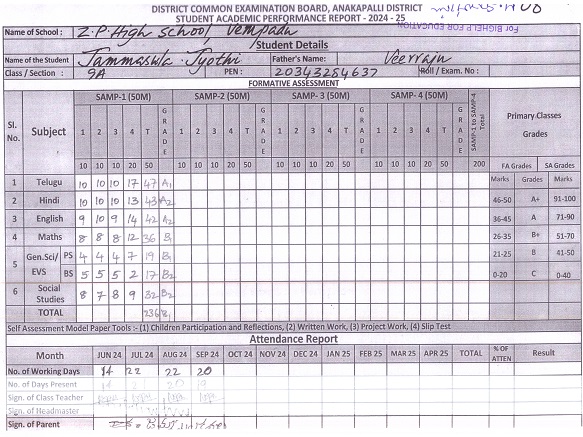 DISTRICT COMMON EXAMINATION BOARD, ANAKAPALLI DISTRICT
STUDENT ACADEMIC PERFORMANCE REPORT - 2024 - 25
For BIGHELP FOR EDUCATION
Name of School : Z.P. High school, Vempadu
Student Details
Name of the Student Jammasula Jyothi Father's Name: Veerraju
Class / Section : 9A PEN : 20343284637 Roll / Exam. No :
FORMATIVE ASSESSMENT
Sl. No. Subject SAMP-1 (50M) SAMP-2 (50M) SAMP- 3 (50M) SAMP- 4 (50M) SAMP-1 to SAMP-4 Total Primary Classes Grades
1 2 3 4 T GRADE 1 2 3 4 T GRADE 1 2 3 4 T GRADE 1 2 3 4 T GRADE
10 10 10 20 50 10 10 10 20 50 10 10 10 20 50 10 10 10 20 50 200 FA Grades SA Grades
Marks Grades Marks
1 Telugu 10 10 10 17 47 A1
2 Hindi 10 10 10 13 43 A2 46-50 A+ 91-100
3 English 9 10 9 14 42 A2 36-45 A 71-90
4 Maths 8 8 8 12 36 B1 26-35 B+ 51-70
5 Gen.Sci/ PS 4 4 4 7 19 B1 21-25 B 41-50
EVS BS 5 5 5 2 17 B2 0-20 C 0-40
6 Social Studies 8 7 8 9 32 B2
TOTAL 236 B1
Self Assessment Model Paper Tools :- (1) Children Participation and Reflections, (2) Written Work, (3) Project Work, (4) Slip Test
Attendance Report
Month JUN 24 JUL 24 AUG 24 SEP 24 OCT 24 NOV 24 DEC 24 JAN 25 FEB 25 MAR 25 APR 25 TOTAL % OF ATTEN Result
No. of Working Days 14 22 22 20
No. of Days Present 14 20 19
Sign. of Class Teacher
Sign. of Headmaster
Sign. of Parent